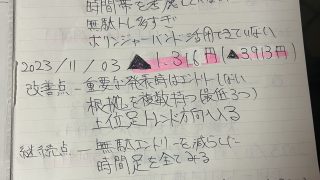 時間帯を考慮していない
無駄トレ多すぎ
ボリンジャーバンド活用できていない
2023/11/03 ▲1.31(円/▲3,913円)
改善点 ― 重要な発表時はエントリーしない
根拠を複数持つ(最低3つ)
上位足トレンド方向へ入る
継続点 ― 無駄エントリーを減らした
時間足を全てみる